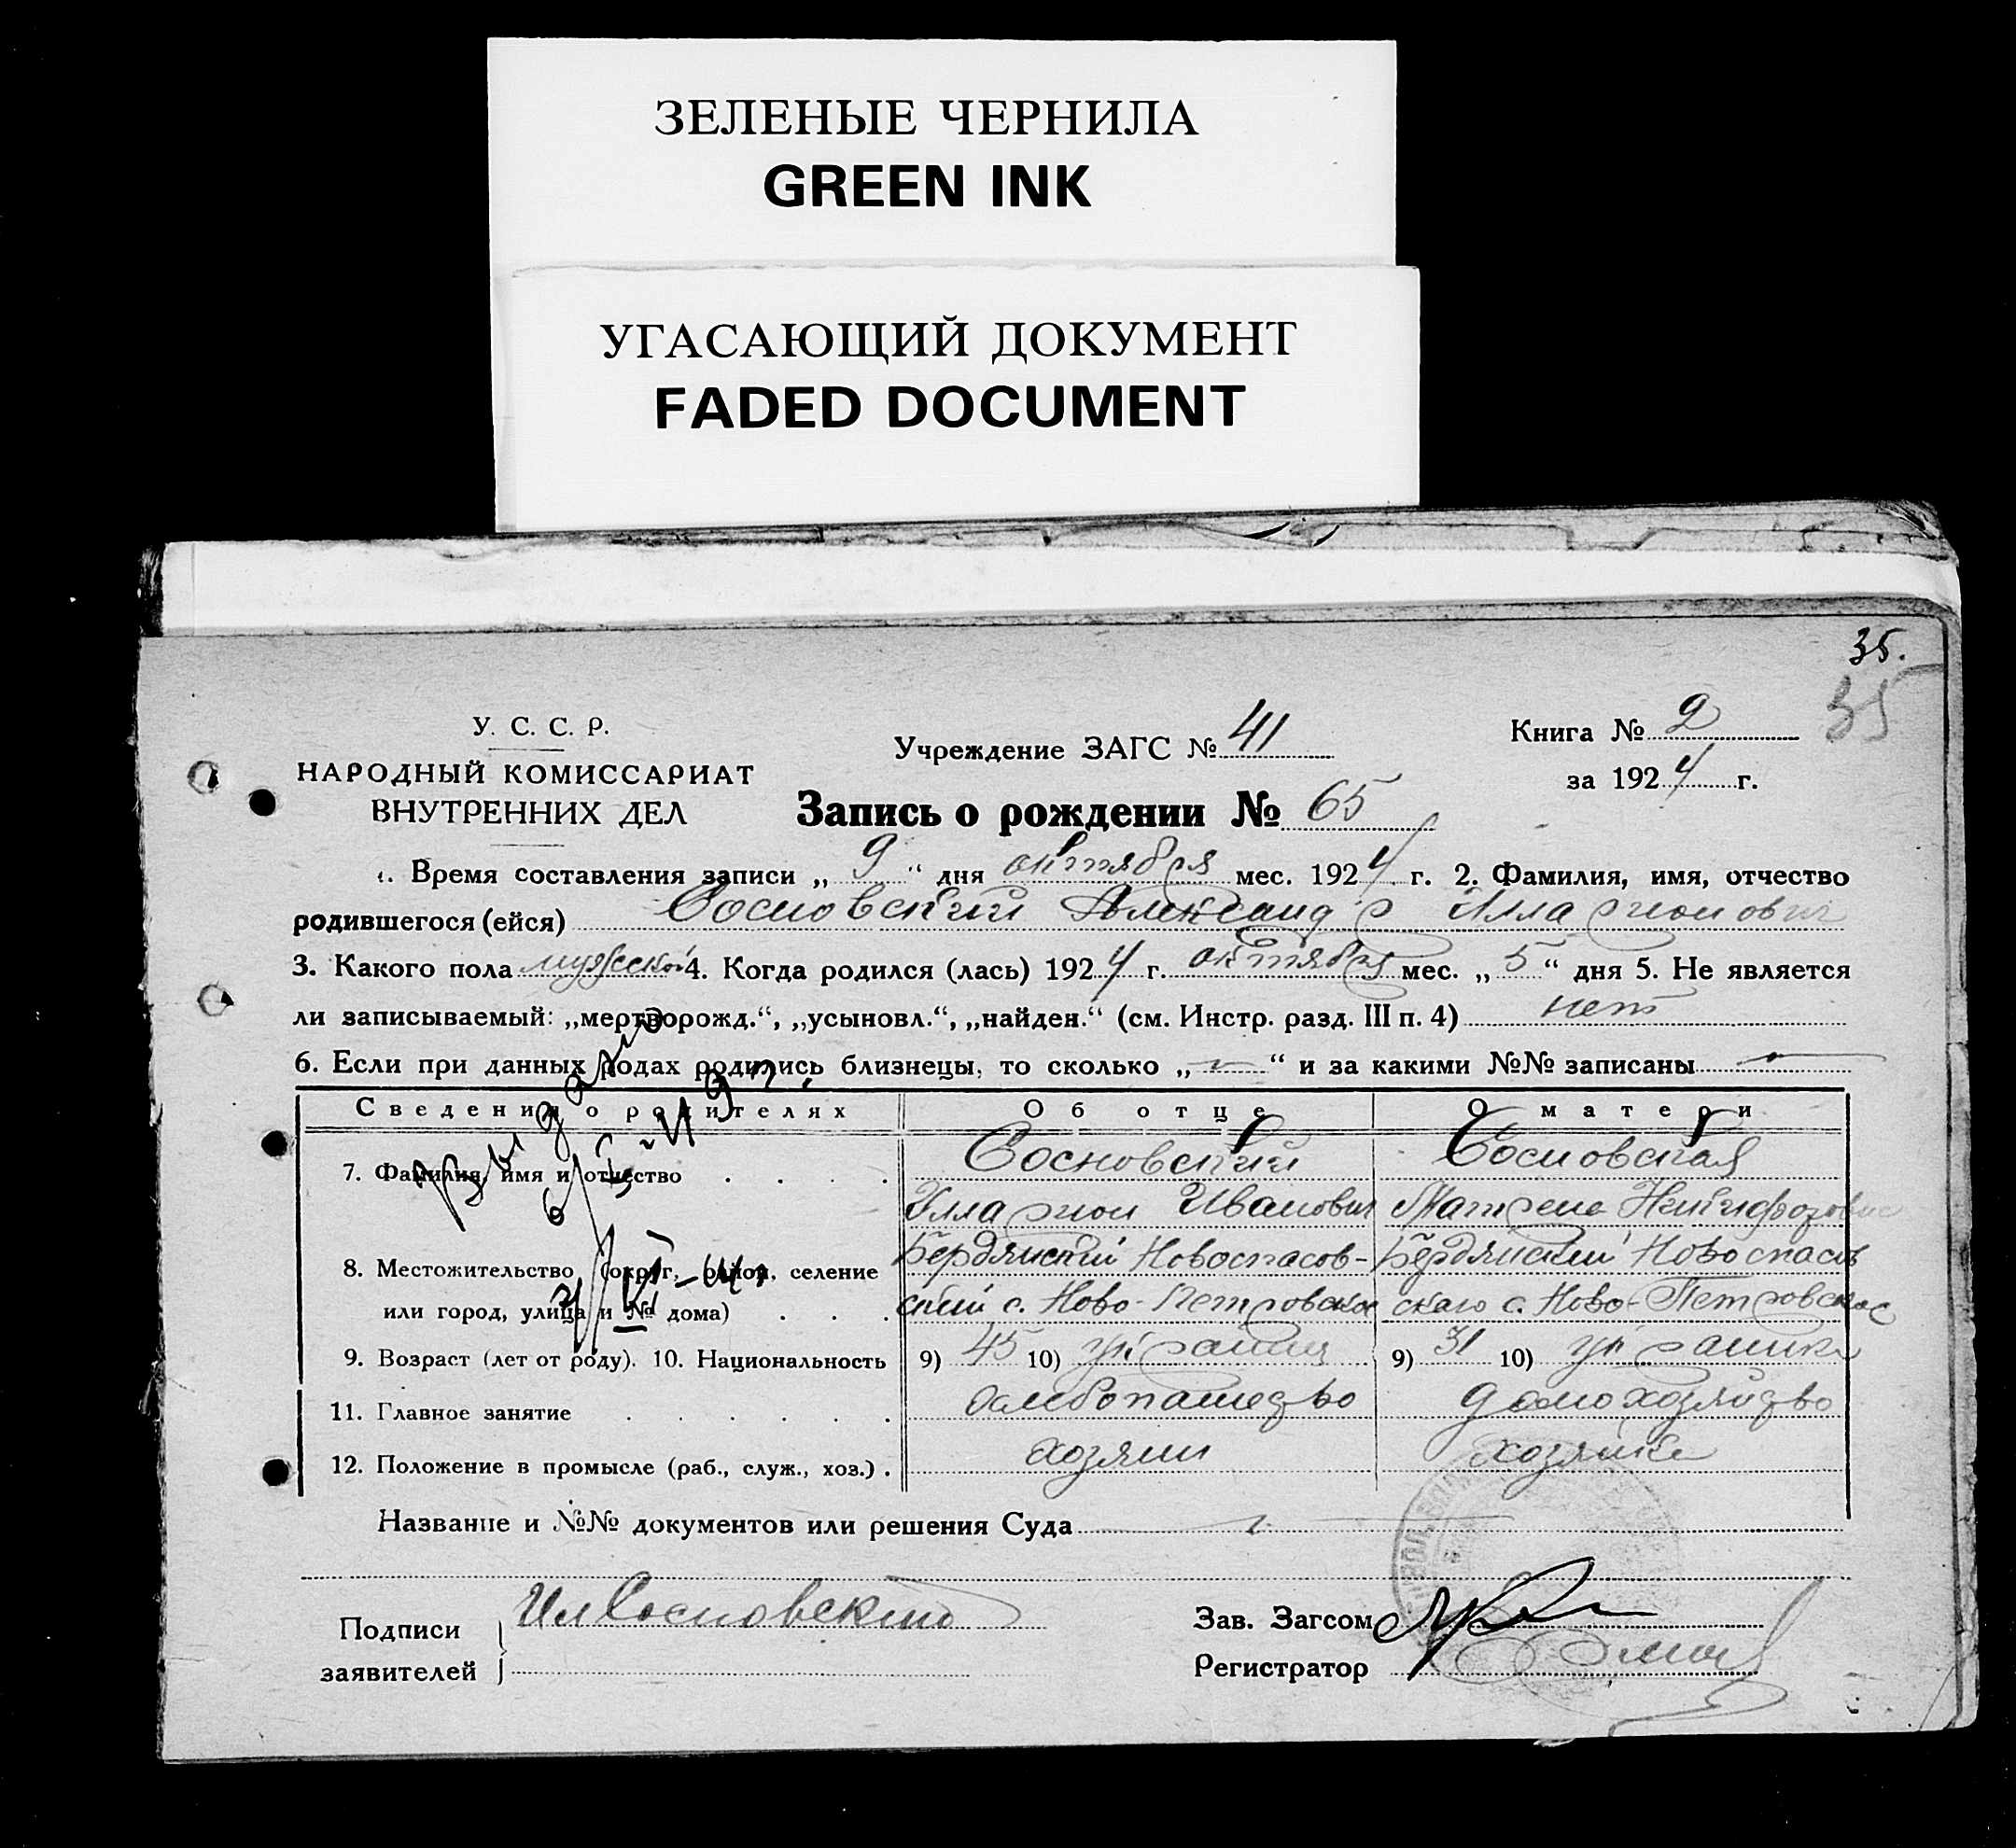 ЗЕЛЕНЫЕ ЧЕРНИЛА
GREEN INK
УГАСАЮЩИЙ ДОКУМЕНТ
FADED DOCUMENT
35.
35
У. С. С. Р.
НАРОДНЫЙ КОМИССАРИАТ
ВНУТРЕННИХ ДЕЛ
Учреждение ЗАГС № 41
Книга № 2
за 1924 г.
Запись о рождении № 65
1. Время составления записи „ 9 “ дня октября мес. 1924 г. 2. Фамилия, имя, отчество
родившегося (ейся) Сосновский Александр Илларионович
3. Какого пола мужской 4. Когда родился (лась) 1924 г. октября мес. „ 5 “ дня 5. Не является
ли записываемый: „мертворожд.“, „усыновл.“, „найден.“ (см. Инстр. разд. III п. 4) нет
6. Если при данных родах родились близнецы, то сколько „ — “ и за какими №№ записаны —
Сведения о родителях Об отце О матери
7. Фамилия, имя и отчество . . . . Сосновский Сосновская
Илларион Иванович Матрена Никифоровна
8. Местожительство (округ, район, селение Бердянский Новоспасов- Бердянский Новоспасов
или город, улица и № дома) . . . ский с. Ново-Петровское скаго с. Ново-Петровское
9. Возраст (лет от роду). 10. Национальность 9) 45 10) украинец 9) 31 10) украинка
11. Главное занятие . . . . . . хлебопашество домохозяйство
12. Положение в промысле (раб., служ., хоз.) . хозяин хозяйка
Название и №№ документов или решения Суда —
Подписи
заявителей
Ил Сосновский
Зав. Загсом
Регистратор